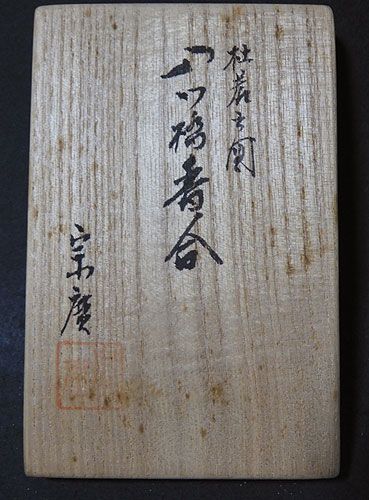 杜若の図
八ツ橋香合
宗廣